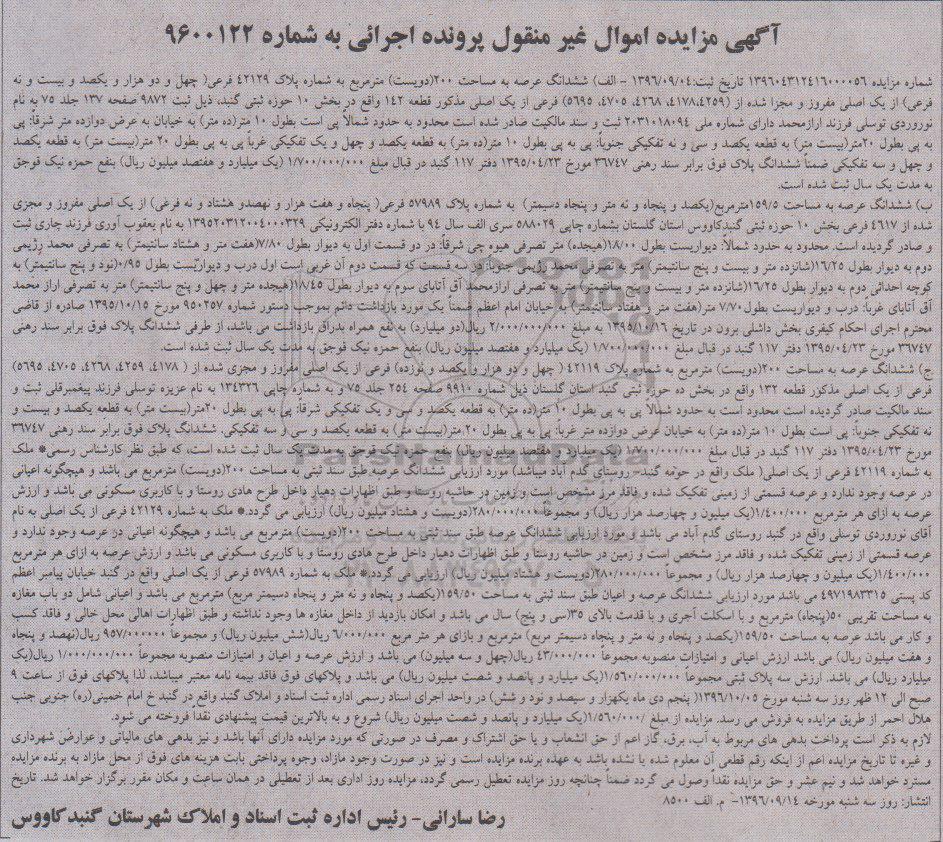 آگهی مزایده اموال غیر منقول پرونده اجرائی به شماره ۹۶۰۰۱۲۲
شماره مزایده ۱۳۹۶۰۴۳۱۲۴۱۶۰۰۰۰۵۶ تاریخ ثبت:۱۳۹۶/۰۹/۰۴ - الف) ششدانگ عرصه به مساحت ۲۰۰(دویست) مترمربع به شماره پلاک ۴۲۱۲۹ فرعی( چهل و دو هزار و یکصد و بیست و نه
فرعی) از یک اصلی مفروز و مجزا شده از (۴۱۷۸،۴۲۵۹، ۴۲۶۸، ۴۷۰۵، ۵۶۹۵) فرعی از یک اصلی مذکور قطعه ۱۴۲ واقع در بخش ۱۰ حوزه ثبتی گنبد، ذیل ثبت ۹۸۷۲ صفحه ۱۳۷ جلد ۷۵ به نام
نوروردی توسلی فرزند ارازمحمد دارای شماره ملی ۲۰۳۱۰۱۸۰۹۴ ثبت و سند مالکیت صادر شده است محدود به حدود شمالاً پی است بطول ۱۰ متر(ده متر) به خیابان به عرض دوازده متر شرقا: پی
به پی بطول ۲۰متر(بیست متر) به قطعه یکصد و سی و نه تفکیکی جنوبا: پی به پی بطول ۱۰ متر(ده متر) به قطعه یکصد و چهل و یک تفکیکی غرباً پی به پی بطول ۲۰ متر(بیست متر) به قطعه یکصد
و چهل و سه تفکیکی ضمناً ششدانگ پلاک فوق برابر سند رهنی ۳۶۷۴۷ مورخ ۱۳۹۵/۰۴/۲۳ دفتر ۱۱۷ گنبد در قبال مبلغ ۱/۷۰۰/۰۰۰/۰۰۰ (یک میلیارد و هفتصد میلیون ریال) بنفع حمزه نیک قوجق
به مدت یک سال ثبت شده است.
ب) ششدانگ عرصه به مساحت ۱۵۹/۵مترمربع(یکصد و پنجاه و نه متر و پنجاه دسیمتر) به شماره پلاک ۵۷۹۸۹ فرعی( پنجاه و هفت هزار و نهصدو هشتاد و نه فرعی) از یک اصلی مفروز و مجزی
شده از ۴۶۱۷ فرعی بخش ۱۰ حوزه ثبتی گنبدکاووس استان گلستان بشماره چاپی ۵۸۸۰۲۹ سری الف سال ۹۴ با شماره دفتر الکترونیکی ۱۳۹۵۲۰۳۱۲۰۰۴۰۰۰۳۲۹ به نام یعقوب آوری فرزند جاری ثبت
و صادر گردیده است. محدود به حدود شمالاً: دیواریست بطول ۱۸/۰۰(هیجده) متر تصرفی هیوه چی شرقاً: در دو قسمت اول به دیوار بطول ۷/۸۰(هفت متر و هشتاد سانتیمتر) به تصرفی محمد رژیمی
دوم به دیوار بطول ۱۶/۲۵(شانزده متر و بیست و پنج سانتیمتر) متر به تصرفی محمد رژیمی جنوبا: در سه قسمت که قسمت دوم آن غربی است اول درب و دیواریست بطول ۰/۹۵(نود و پنج سانتیمتر) به
کوچه احداثی دوم به دیوار بطول ۱۶/۲۵(شانزده متر و بیست و پنج سانتیمتر) متر به تصرفی ارازمحمد آق آتابای سوم به دیوار بطول ۱۸/۴۵(هیجده متر و چهل و پنج سانتیمتر) متر به تصرفی اراز محمد
آق آتابای غربا: درب و دیواریست بطول ۷/۷۰ متر(هفت متر و هفتاد سانتیمتر) به خیابان امام اعظم ضمناً یک مورد بازداشت دائم بموجب دستور شماره ۹۵۰۲۵۷ مورخ ۱۳۹۵/۱۰/۱۵ صادره از قاضی
محترم اجرای احکام کیفری بخش داشلی برون در تاریخ ۱۳۹۵/۱۰/۱۶ به مبلغ ۲/۰۰۰/۰۰۰/۰۰۰ ریال(دو میلیارد) به نفع همراه بدراق بازداشت می باشد، از طرفی ششدانگ پلاک فوق برابر سند رهنی
۳۶۷۴۷ مورخ ۱۳۹۵/۰۴/۲۳ دفتر ۱۱۷ گنبد در قبال مبلغ ۱/۷۰۰/۰۰۰/۰۰۰ (یک میلیارد و هفتصد میلیون ریال) بنفع حمزه نیک قوجق به مدت یک سال ثبت شده است.
ج) ششدانگ عرصه به مساحت ۲۰۰(دویست) مترمربع به شماره پلاک ۴۲۱۱۹ ( چهل و دو هزار و یکصد و نوزده) فرعی از یک اصلی مفروز و مجزی شده از ( ۴۱۷۸، ۴۲۵۹، ۴۲۶۸، ۴۷۰۵، ۵۶۹۵)
فرعی از یک اصلی مذکور قطعه ۱۳۲ واقع در بخش ده حوزه ثبتی گنبد استان گلستان ذیل شماره ۹۹۱۰ صفحه ۲۵۴ جلد ۷۵ و به شماره چاپی ۱۳۴۳۲۶ به نام عزیزه توسلی فرزند پیغمبرقلی ثبت و
سند مالکیت صادر گردیده است محدود است به حدود شمالاً پی به پی بطول ۱۰ متر(ده متر) به قطعه یکصد و سی و یک تفکیکی شرقا: پی به پی بطول ۲۰متر(بیست متر) به قطعه یکصد و بیست و
نه تفکیکی جنوبا: پی است بطول ۱۰ متر(ده متر) به خیابان عرض دوازده متر غربا: پی به پی بطول ۲۰ متر(بیست متر) به قطعه یکصد و سی و سه تفکیکی. ششدانگ پلاک فوق برابر سند رهنی ۳۶۷۴۷
مورخ ۱۳۹۵/۰۴/۲۳ دفتر ۱۱۷ گنبد در قبال مبلغ ۱/۷۰۰/۰۰۰/۰۰۰ (یک میلیارد و هفتصد میلیون ریال) بنفع حمزه نیک قوجق به مدت یک سال ثبت شده است، که طبق نظر کارشناس رسمی* ملک
به شماره ۴۲۱۱۹ فرعی از یک اصلی( ملک واقع در حومه گنبد- روستای گدم آباد میباشد) مورد ارزیابی ششدانگ عرصه طبق سند ثبتی به مساحت ۲۰۰(دویست) مترمربع می باشد و هیچگونه اعیانی
در عرصه وجود ندارد و عرصه قسمتی از زمینی تفکیک شده و فاقد مرز مشخص است و زمین در حاشیه روستا و طبق اظهارات دهیار داخل طرح هادی روستا و با کاربری مسکونی می باشد و ارزش
عرصه به ازای هر مترمربع ۱/۴۰۰/۰۰۰(یک میلیون و چهارصد هزار ریال) و مجموعاً ۲۸۰/۰۰۰/۰۰۰(دویست و هشتاد میلیون ریال) ارزیابی می گردد.* ملک به شماره ۴۲۱۲۹ فرعی از یک اصلی به نام
آقای نوروردی توسلی واقع در گنبد روستای گدم آباد می باشد و مورد ارزیابی ششدانگ عرصه طبق سند ثبتی به مساحت ۲۰۰(دویست) مترمربع می باشد و هیچگونه اعیانی در عرصه وجود ندارد و
عرصه قسمتی از زمینی تفکیک شده و فاقد مرز مشخص است و زمین در حاشیه روستا و طبق اظهارات دهیار داخل طرح هادی روستا و با کاربری مسکونی می باشد و ارزش عرصه به ازای هر مترمربع
۱/۴۰۰/۰۰۰(یک میلیون و چهارصد هزار ریال) و مجموعاً ۲۸۰/۰۰۰/۰۰۰(دویست و هشتاد میلیون ریال) ارزیابی می گردد.* ملک به شماره ۵۷۹۸۹ فرعی از یک اصلی واقع در گنبد خیابان پیامبر اعظم
کد پستی ۴۹۷۱۹۸۳۳۱۵ می باشد مورد ارزیابی ششدانگ عرصه و اعیان طبق سند ثبتی به مساحت ۱۵۹/۵۰(یکصد و پنجاه و نه متر و پنجاه دسیمتر مربع) مترمربع می باشد و اعیانی شامل دو باب مغازه
به مساحت تقریبی ۵۰(پنجاه) مترمربع و با اسکلت آجری و با قدمت بالای ۳۵(سی و پنج) سال می باشد و امکان بازدید از داخل مغازه ها وجود نداشته و طبق اظهارات اهالی محل خالی و فاقد کسب
و کار می باشد عرصه به مساحت ۱۵۹/۵۰(یکصد و پنجاه و نه متر و پنجاه دسیمتر مربع) مترمربع و بازای هر متر مربع ۶/۰۰۰/۰۰۰ ریال(شش میلیون ریال) و مجموعاً ۹۵۷/۰۰۰۰۰۰ ریال(نهصد و پنجاه
و هفت میلیون ریال) می باشد ارزش اعیانی و امتیازات منصوبه مجموعاً ۴۳/۰۰۰/۰۰۰ ریال(چهل و سه میلیون) می باشد و ارزش عرصه و اعیان و امتیازات منصوبه مجموعاً ۱/۰۰۰/۰۰۰/۰۰۰ ریال(یک
میلیارد ریال) می باشد. ارزش سه پلاک ثبتی مجموعاً ۱/۵۶۰/۰۰۰/۰۰۰(یک میلیارد و پانصد و شصت میلیون ریال) می باشد و پلاکهای فوق فاقد بیمه نامه معتبر میباشد، لذا پلاکهای فوق از ساعت ۹
صبح الی ۱۲ ظهر روز سه شنبه مورخ ۱۳۹۶/۱۰/۰۵( پنجم دی ماه یکهزار و سیصد و نود و شش) در واحد اجرای اسناد رسمی اداره ثبت اسناد و املاک گنبد واقع در گنبد خ امام خمینی(ره) جنوبی جنب
هلال احمر از طریق مزایده به فروش می رسد. مزایده از مبلغ ۱/۵۶۰/۰۰۰/(یک میلیارد و پانصد و شصت میلیون ریال) شروع و به بالاترین قیمت پیشنهادی نقداً فروخته می شود.
لازم به ذکر است پرداخت بدهی های مربوط به آب، برق، گاز اعم از حق انشعاب و یا حق اشتراک و مصرف در صورتی که مورد مزایده دارای آنها باشد و نیز بدهی های مالیاتی و عوارض شهرداری
و غیره تا تاریخ مزایده اعم از اینکه رقم قطعی آن معلوم شده یا نشده باشد به عهده برنده مزایده است و نیز در صورت وجود مازاد، وجوه پرداختی بابت هزینه های فوق از محل مازاد به برنده مزایده
مسترد خواهد شد و نیم عشر و حق مزایده نقداً وصول می گردد ضمناً چنانچه روز مزایده تعطیل رسمی گردد، مزایده روز اداری بعد از تعطیلی در همان ساعت و مکان مقرر برگزار خواهد شد. تاریخ
انتشار: روز سه شنبه مورخه ۱۳۹۶/۰۹/۱۴- م. الف ۸۵۰۰
رضا سارانی- رئیس اداره ثبت اسناد و املاک شهرستان گنبدکاووس
ParsNamadData